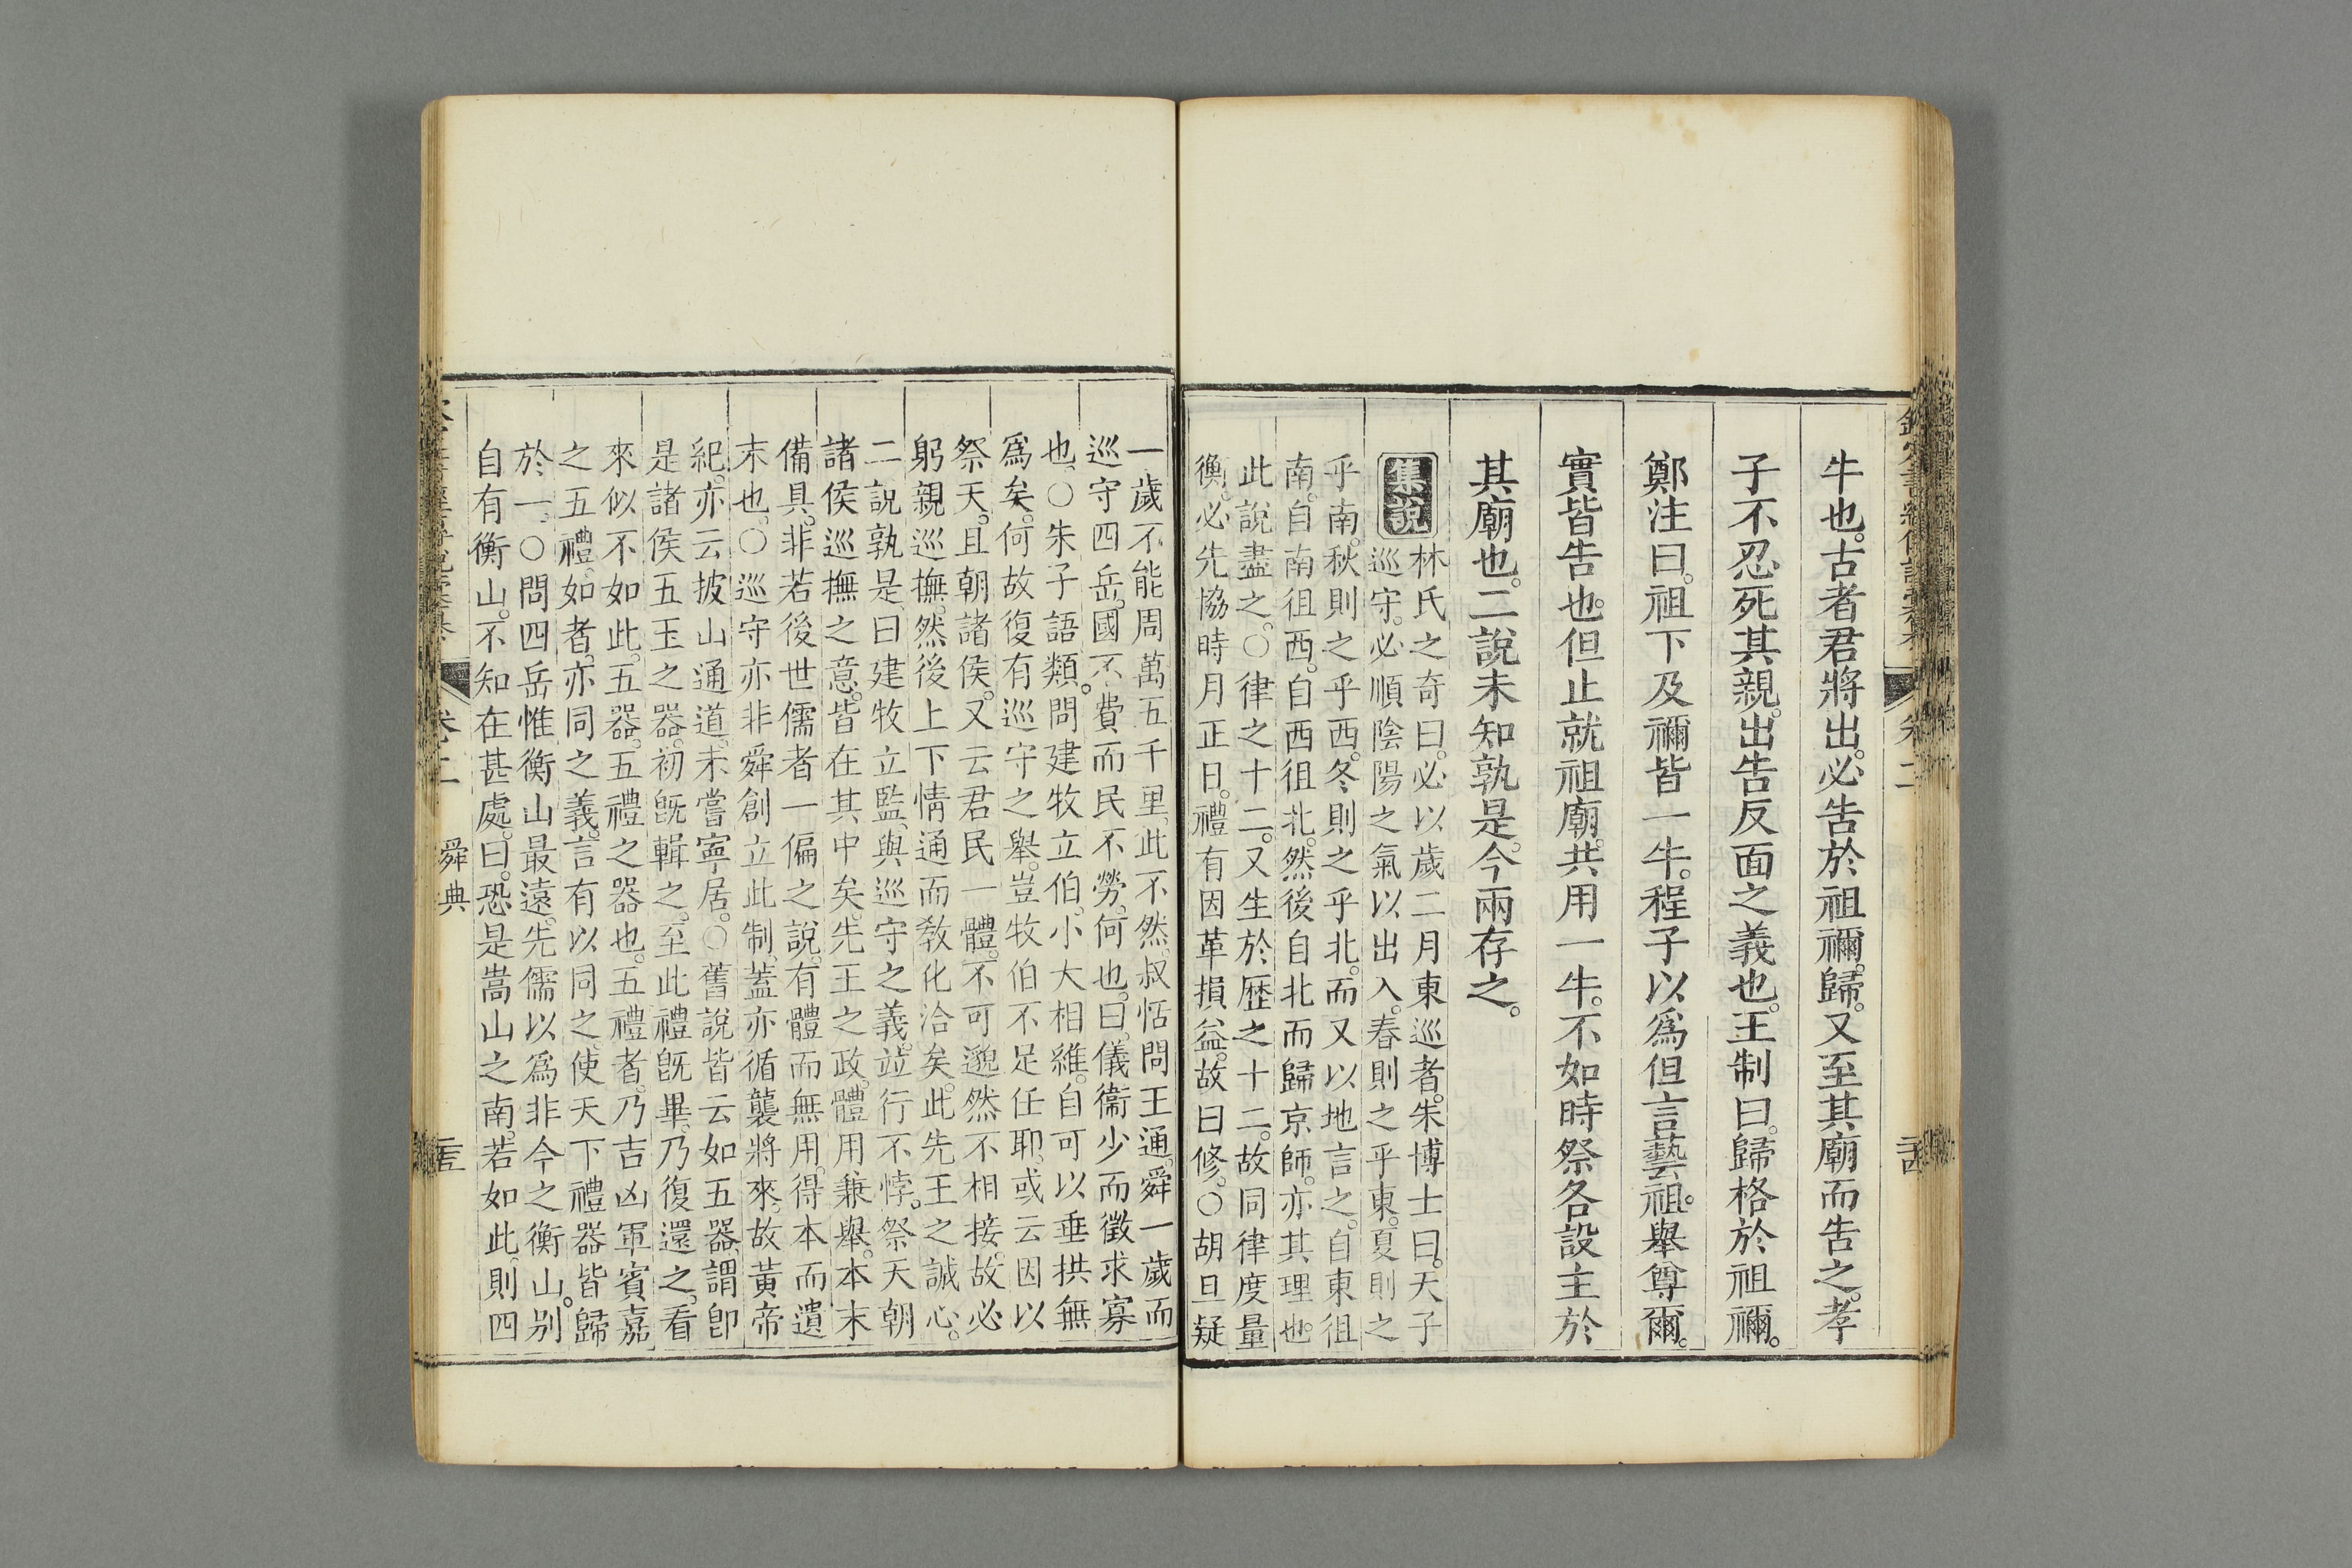 牛也。古者君將出。必告於祖禰。歸。又至其廟而告之。孝
子不忍死其親。出告反面之義也。王制曰。歸格於祖禰。
鄭注曰。祖下及禰皆一牛。程子以爲但言藝祖。舉尊爾。
實皆告也。但止就祖廟。共用一牛。不如時祭各設主於
其廟也。二說未知孰是。今兩存之。
集說
林氏之奇曰。必以歲二月東巡者。朱博士曰。天子
巡守。必順陰陽之氣以出入。春則之乎東。夏則之
乎南。秋則之乎西。冬則之乎北。而又以地言之。自東徂
南。自南徂西。自西徂北。然後自北而歸京師。亦其理也。
此說盡之。○律之十二。又生於歷之十二。故同律度量
衡。必先協時月正日。禮有因革損益。故曰修。○胡旦疑
一歲不能周萬五千里。此不然。叔恬問王通。舜一歲而
巡守四岳。國不費而民不勞。何也。曰。儀衞少而徵求寡
也。○朱子語類。問建牧立伯。小大相維。自可以垂拱無
爲矣。何故復有巡守之舉。豈牧伯不足任耶。或云因以
祭天。且朝諸侯。又云君民一體。不可邈然不相接。故必
躬親巡撫。然後上下情通而敎化洽矣。此先王之誠心。
二說孰是。曰建牧立監。與巡守之義。竝行不悖。祭天朝
諸侯巡撫之意。皆在其中矣。先王之政。體用兼舉。本末
備具。非若後世儒者一偏之說。有體而無用。得本而遺
末也。○巡守亦非舜創立此制。蓋亦循襲將來。故黃帝
紀。亦云披山通道。未嘗寧居。○舊說皆云如五器。謂卽
是諸侯五玉之器。初旣輯之。至此禮旣畢。乃復還之。看
來似不如此。五器。五禮之器也。五禮者。乃吉凶軍賓嘉
之五禮。如者。亦同之義。言有以同之。使天下禮器皆歸
於一。○問四岳惟衡山最遠。先儒以爲非今之衡山。别
自有衡山。不知在甚處。曰。恐是嵩山之南。若如此。則四
卷二
舜典